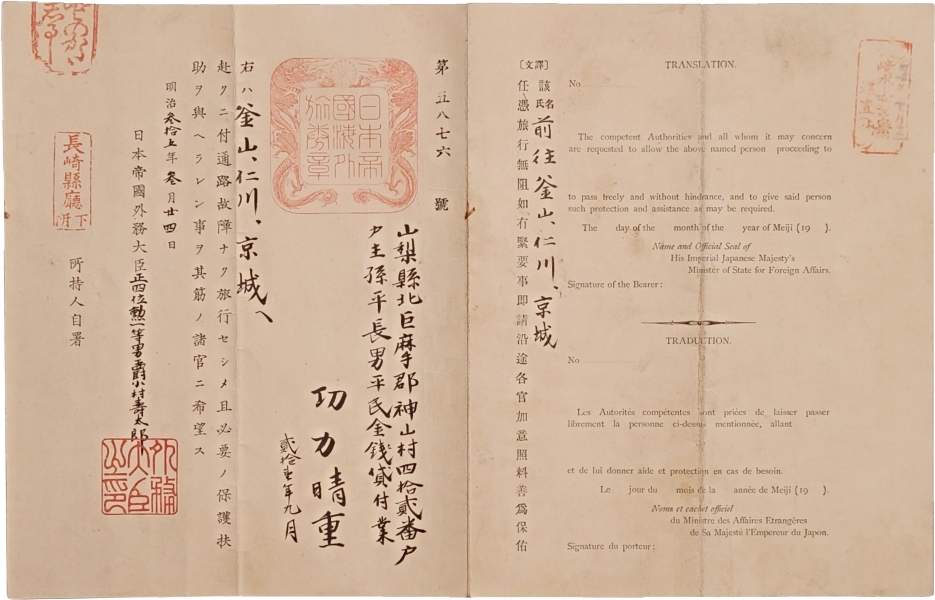 第五八七六號
日本帝
國海外
旅券章
山梨縣北巨麻郡神山村四拾貳番戸
戸主孫平長男平民金錢貸付業
功力晴重
貳拾壱年九月
右ハ釜山、仁川、京城へ
赴クニ付通路故障ナク旅行セシメ且必要ノ保護扶
助ヲ與ヘラレン事ヲ其筋ノ諸官ニ希望ス
明治叁拾五年叁月廿四日
日本帝國外務大臣正四位勲一等男爵小村壽太郎
外務
大臣
之印
所持人自署
長崎縣廳
下附
〔文譯〕
該氏名前往釜山、仁川、京城
任憑旅行無阻如有緊要事即請沿途各官加意照料善為保佑
TRANSLATION.
No
The competent Authorities and all whom it may concern
are requested to allow the above named person proceeding to
to pass freely and without hindrance, and to give said person
such protection and assistance as may be required.
The day of the month of the year of Meiji (19 ).
Name and Official Seal of
His Imperial Japanese Majesty's
Minister of State for Foreign Affairs.
Signature of the Bearer :
TRADUCTION.
No
Les Autorités compétentes sont priées de laisser passer
librement la personne ci-dessus mentionnée, allant
et de lui donner aide et protection en cas de besoin.
Le jour du mois de la année de Meiji (19 ).
Noms et cachet officiel
du Ministre des Affaires Etrangères
de Sa Majesté l'Empereur du Japon.
Signature du porteur :